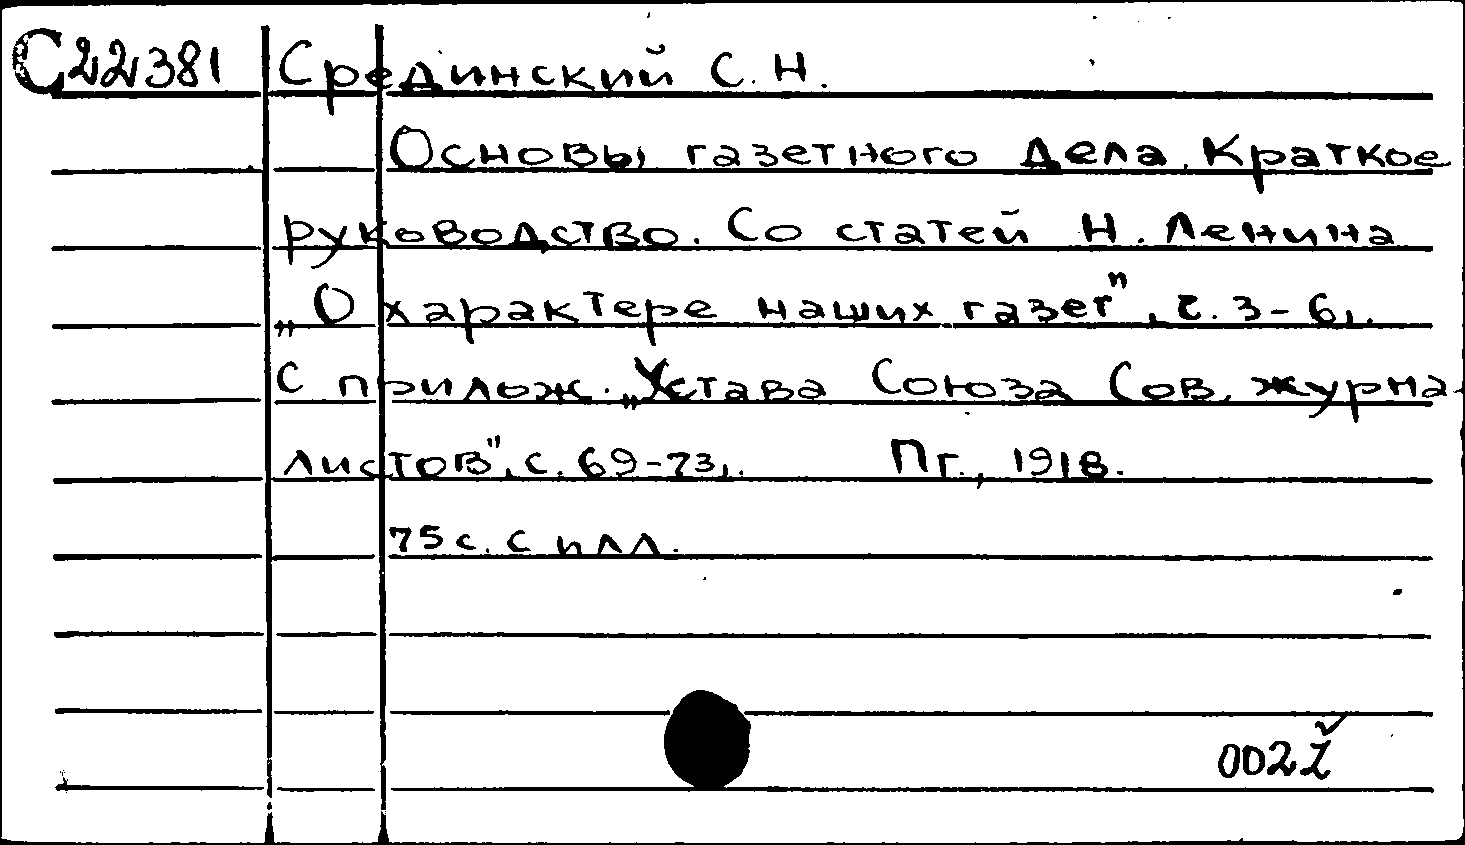 С22381 Срединский С. Н.
Основы газетного дела. Краткое
руководство. Со статей Н. Ленина
„О характере наших газет", с. 3-6,.
С прилож. „Устава Союза Сов. журна-
листов", с. 69-73,. Пг., 1918.
75 с. с илл.